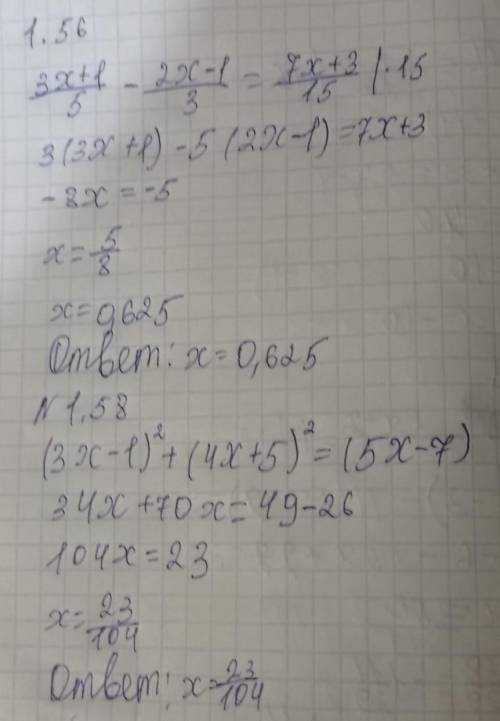 1.56
(3x+1)/5 - (2x-1)/3 = (7x+3)/15 |·15
3(3x+1)-5(2x-1)=7x+3
-8x=-5
x=5/8
x=0,625
Ответ: x=0,625
N 1.58
(3x-1)²+(4x+5)²=(5x-7)
34x+70x=49-26
104x=23
x=23/104
Ответ: x=23/104